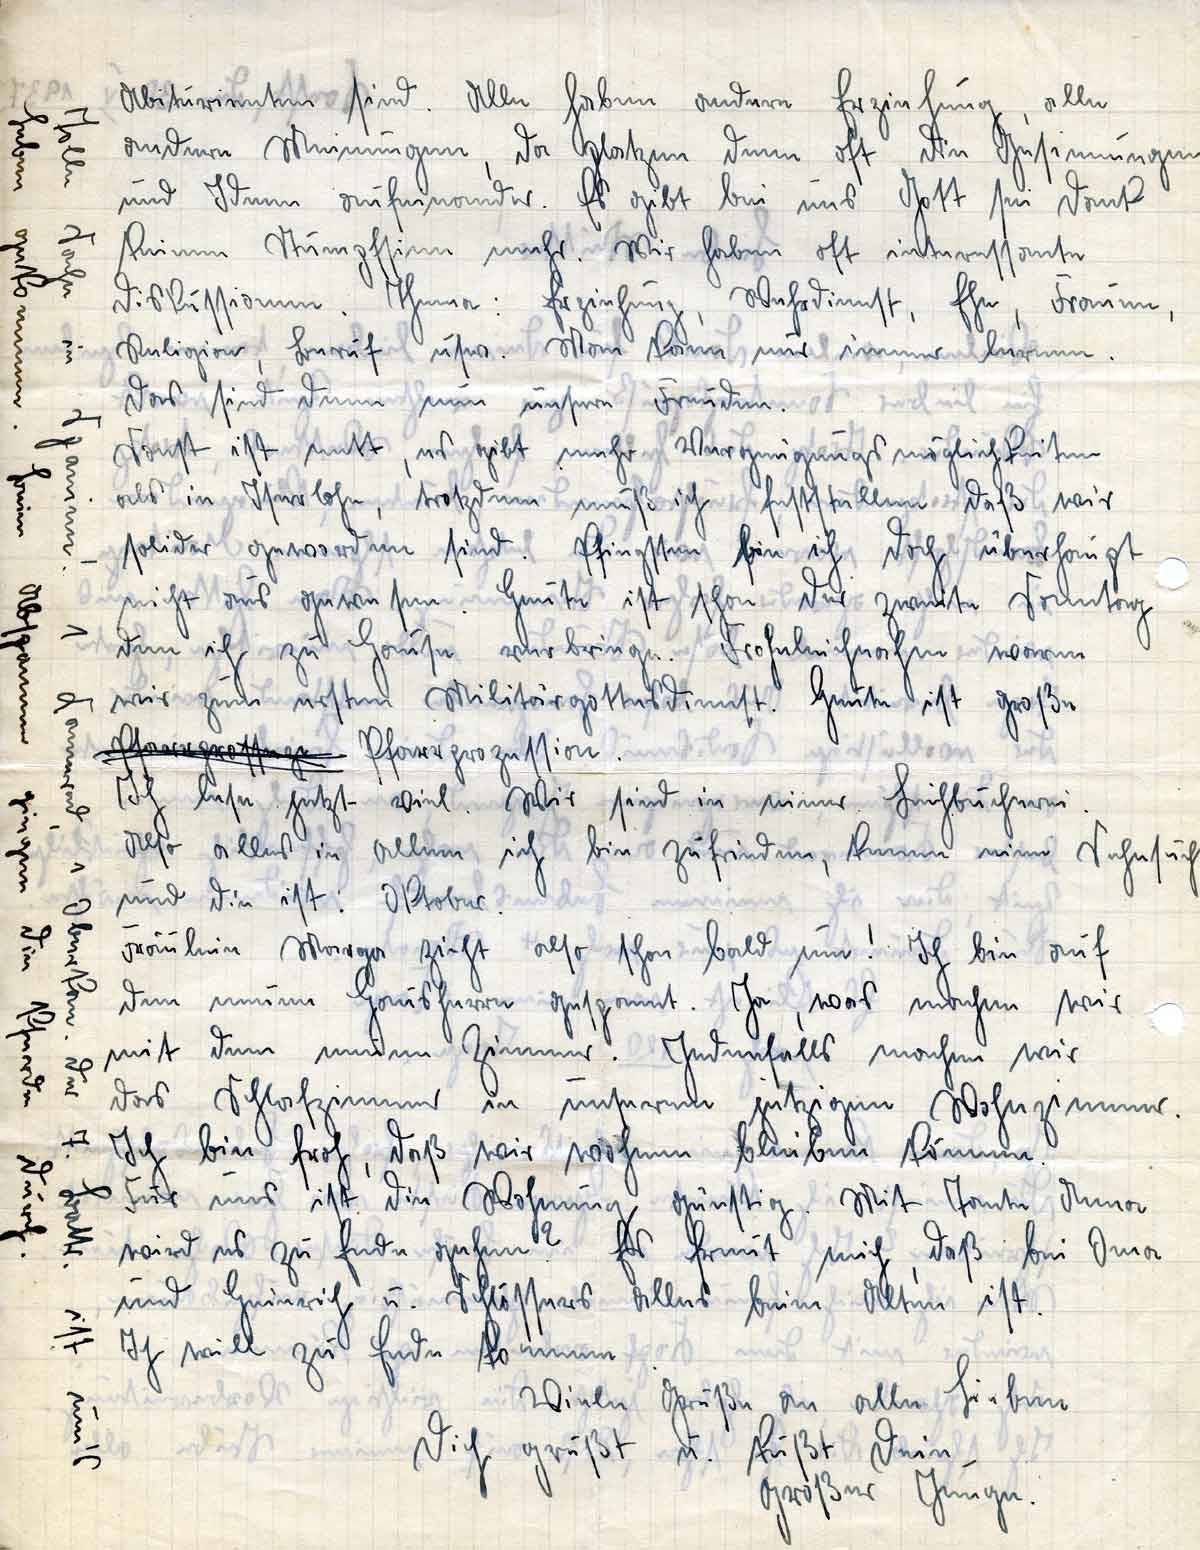 Abiturienten sind. Alle haben andere Erziehung, alle
andere Meinungen, da platzen denn oft die Gesinnungen
und Ideen aufeinander. Es gibt bei uns Gott sei Dank
keinen Stumpfsinn mehr. Wir haben oft interessante
Diskussionen. Thema: Erziehung, Wehrdienst, Ehe, Frauen,
Religion, Beruf usw. Man kann nur immer lernen.
Das sind denn nun unsere Freuden.
Sonst ist nett, es gibt mehr Vergnügungsmöglichkeiten
als in Iserlohn, trotzdem muß ich feststellen daß wir
solider geworden sind. Pfingsten bin ich doch überhaupt
nicht aus gewesen. Heute ist schon der zweite Sonntag
den ich zu Hause verbringe. Frohnleichnahm waren
wir zum ersten Militärgottesdienst. Heute ist große
Pfarrprozession.
Ich lese jetzt viel. Wir sind in einer Leihbücherei.
Also alles in allem ich bin zufrieden, kenne eine Sehnsuch
und die ist: Oktober.
Fräulein Marga zieht also schon bald um! Ich bin auf
den neuen Hausherrn gespannt. Ja, was machen wir
mit dem neuen Zimmer. Jedenfalls machen wir
das Schlafzimmer in unserem jetzigen Wohnzimmer.
Ich bin froh, daß wir wohnen bleiben können.
Für uns ist die Wohnung günstig. Mit Tante Anna
wird es zu Ende gehen? Es freut mich, daß bei Oma
und Heinrich u. Schlössers alles beim Alten ist.
Ich will zu Ende kommen
Viele Grüße an alle Lieben
Dich grüßt u. küßt Dein
großer Junge.
Tolle Tage in Spanien! 1 Kamerad, 1 Oberkan. der 7. Batt. ist ums
Leben gekommen. Beim Abspannen gingen die Pferde durch.